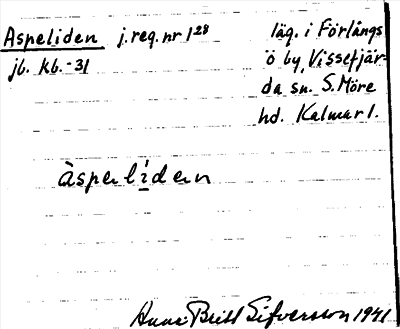 Aspeliden j.reg.nr 1²⁸ läg. i Förlångs
jb. kb.-31 ö by, Vissefjär-
da sn. S. Möre
hd. Kalmar l.
àsperlídern
Anna-Britt Sifversson 1941